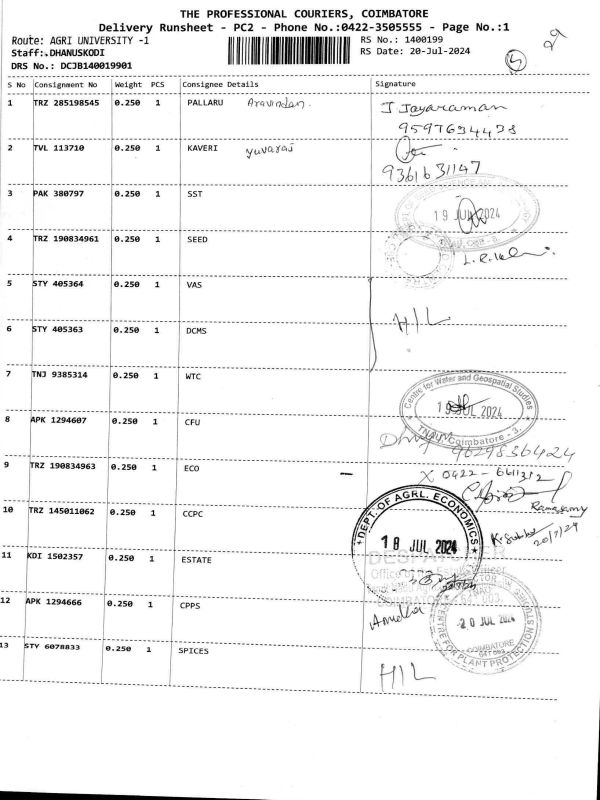 THE PROFESSIONAL COURIERS, COIMBATORE
Delivery Runsheet - PC2 - Phone No.:0422-3505555 - Page No.:1
Route: AGRI UNIVERSITY -1
RS No.: 1400199
Staff:.DHANUSKODI
RS Date: 20-Jul-2024
DRS No.: DCJB140019901
S No Consignment No Weight PCS Consignee Details Signature
1 TRZ 285198545 0.250 1 PALLARU Aravindan. J. Jayaraman
9597634438
2 TVL 113710 0.250 1 KAVERI Yuvaraj
9361631147
3 PAK 380797 0.250 1 SST
19 JUL 2024
4 TRZ 190834961 0.250 1 SEED
5 STY 405364 0.250 1 VAS
HIL
6 STY 405363 0.250 1 DCMS
7 TNJ 9385314 0.250 1 WTC
Centre for Water and Geospatial Studies
19 JUL 2024
TNAU, Coimbatore - 3.
8 APK 1294607 0.250 1 CFU
9629836424
9 TRZ 190834963 0.250 1 ECO
X 0422-6611312
Ramasamy
10 TRZ 145011062 0.250 1 CCPC
DEPT. OF AGRL. ECONOMICS
18 JUL 2024
20/7/24
11 KDI 1502357 0.250 1 ESTATE
12 APK 1294666 0.250 1 CPPS
CENTRE FOR PLANT PROTECTION STUDIES
20 JUL 2024
COIMBATORE
13 STY 6078833 0.250 1 SPICES
HIL